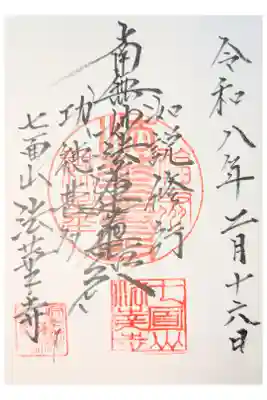 令和八年二月十六日
如説修行
南無妙法蓮華経
功徳甚多
七面山 法華寺
七面山
法華寺